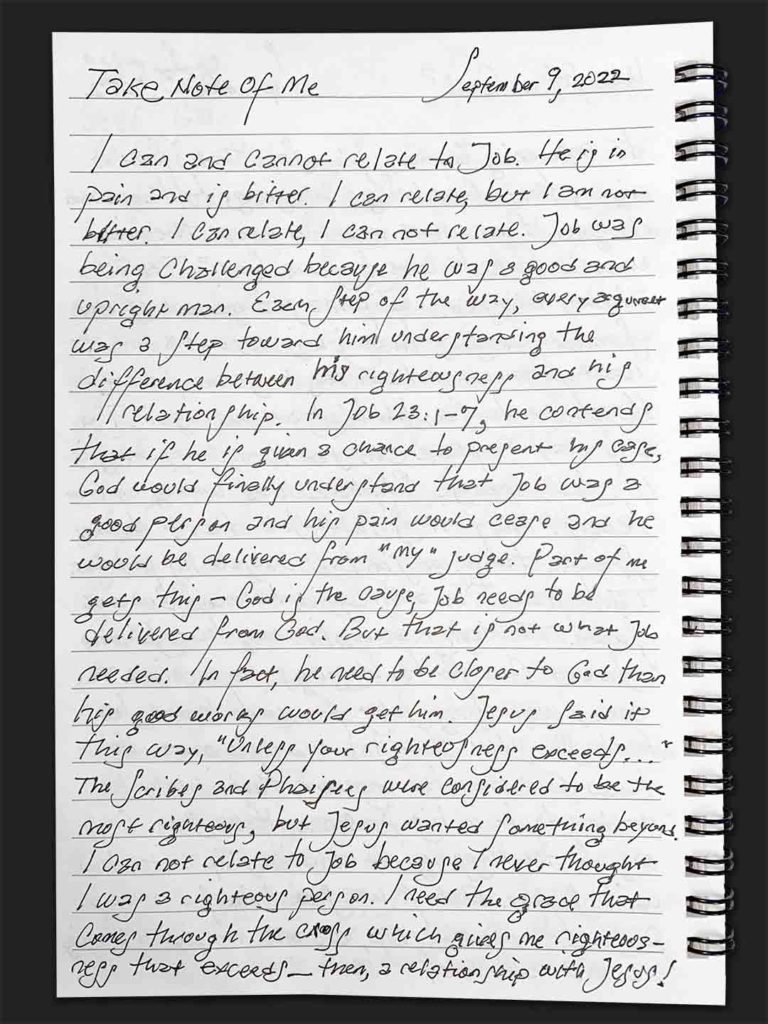 Take Note Of Me September 9, 2022
I can and cannot relate to Job. He is in
pain and is bitter. I can relate, but I am not
bitter. I can relate, I can not relate. Job was
being challenged because he was a good and
upright man. Each step of the way, every argument
was a step toward him understanding the
difference between his righteousness and his
relationship. In Job 23:1-7, he contends
that if he is given a chance to present his case,
God would finally understand that Job was a
good person and his pain would cease and he
would be delivered from "my" judge. Part of me
gets this - God is the cause, Job needs to be
delivered from God. But that is not what Job
needed. In fact, he need to be closer to God than
his good works would get him. Jesus said it
this way, "Unless your righteousness exceeds..."
The Scribes and Phaisees were considered to be the
most righteous, but Jesus wanted something beyond.
I can not relate to Job because I never thought
I was a righteous person. I need the grace that
comes through the cross which gives me righteous-
ness that exceeds — then, a relationship with Jesus!